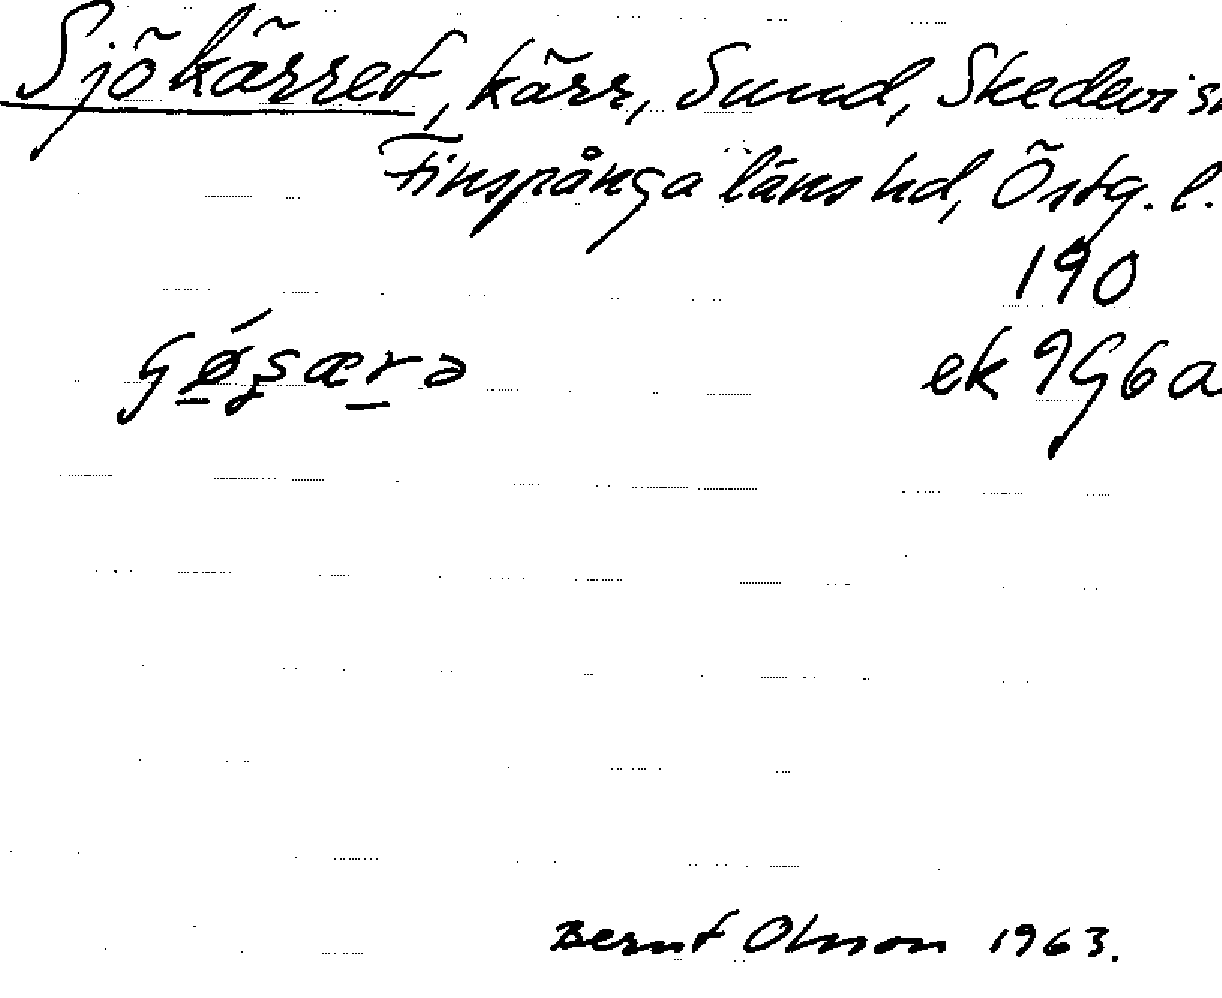 Sjökärret, kärr, Sund, Skedevi sn
Finspånga läns hd, Östg. l.
190
ek 9G6a
Bernt Olsson 1963.